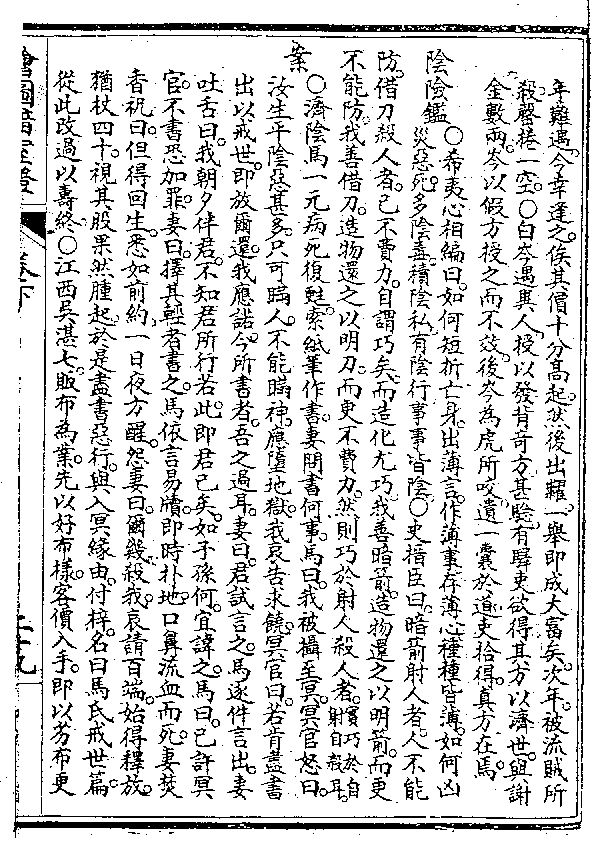 年難遇今幸逢之俟其價十分高起然後出糶一舉即成大富矣次年被流賊所
殺罄捲一空○白岑遇異人授以發背奇方甚驗有驛吏欲得其方以濟世與謝
金數兩岑以假方授之而不效後岑為虎所咬遺一囊於道吏拾得真方在焉
陰險鑑 ○希夷心相編曰如何短折亡身出薄言作薄事存薄心種種皆薄如何凶
災惡死多陰毒積陰私有陰行事事皆陰○史搢臣曰暗箭射人者人不能
防借刀殺人者己不費力自謂巧矣而造化尤巧我善暗箭造物還之以明箭而更
不能防我善借刀造物還之以明刀而更不費力然則巧於射人殺人者實巧於自射自殺耳
案 ○濟陰馬一元病死復甦索紙筆作書妻問書何事馬曰我被攝至冥冥官怒曰
汝生平陰惡甚多只可瞞人不能瞞神應墮地獄我哀告求饒冥官曰若肯盡書
出以戒世即放爾還我應諾今所書者吾之過耳妻曰君試言之馬逐件言出妻
吐舌曰我朝夕伴君不知君所行若此即君已矣如子孫何宜諱之馬曰已許冥
官不書恐加罪妻曰擇其輕者書之馬依言易牘即時扑地口鼻流血而死妻焚
香祝曰但得回生悉如前約一日夜方醒怨妻曰爾殺我哀請百端始得釋放
猶杖四十視其股果然腫起於是盡書惡行與入冥緣由付梓名曰馬氏戒世篇
從此改過以壽終○江西吳湛七販布為業先以好布樣客價入手即以芴布更
繪圖暗室燈
卷下